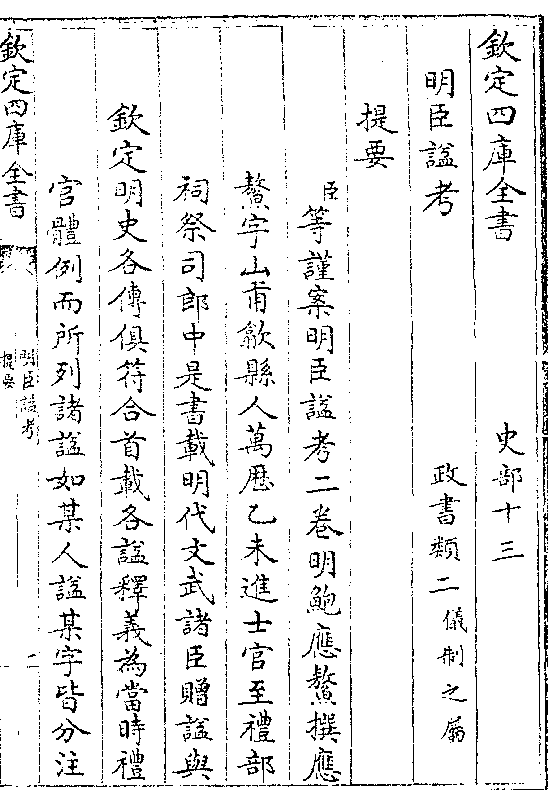 欽定四庫全書 史部十三
明臣諡考 政書類二儀制之屬
提要
臣等謹案明臣諡考二卷明鮑應鰲撰應
鰲字山甫歙縣人萬厯乙未進士官至禮部
祠祭司郎中是書載明代文武諸臣贈諡與
欽定明史各傳俱符合首載各諡釋義為當時禮
官體例而所列諸諡如某人諡某字皆分注
欽定四庫全書
明臣諡考
提要
一